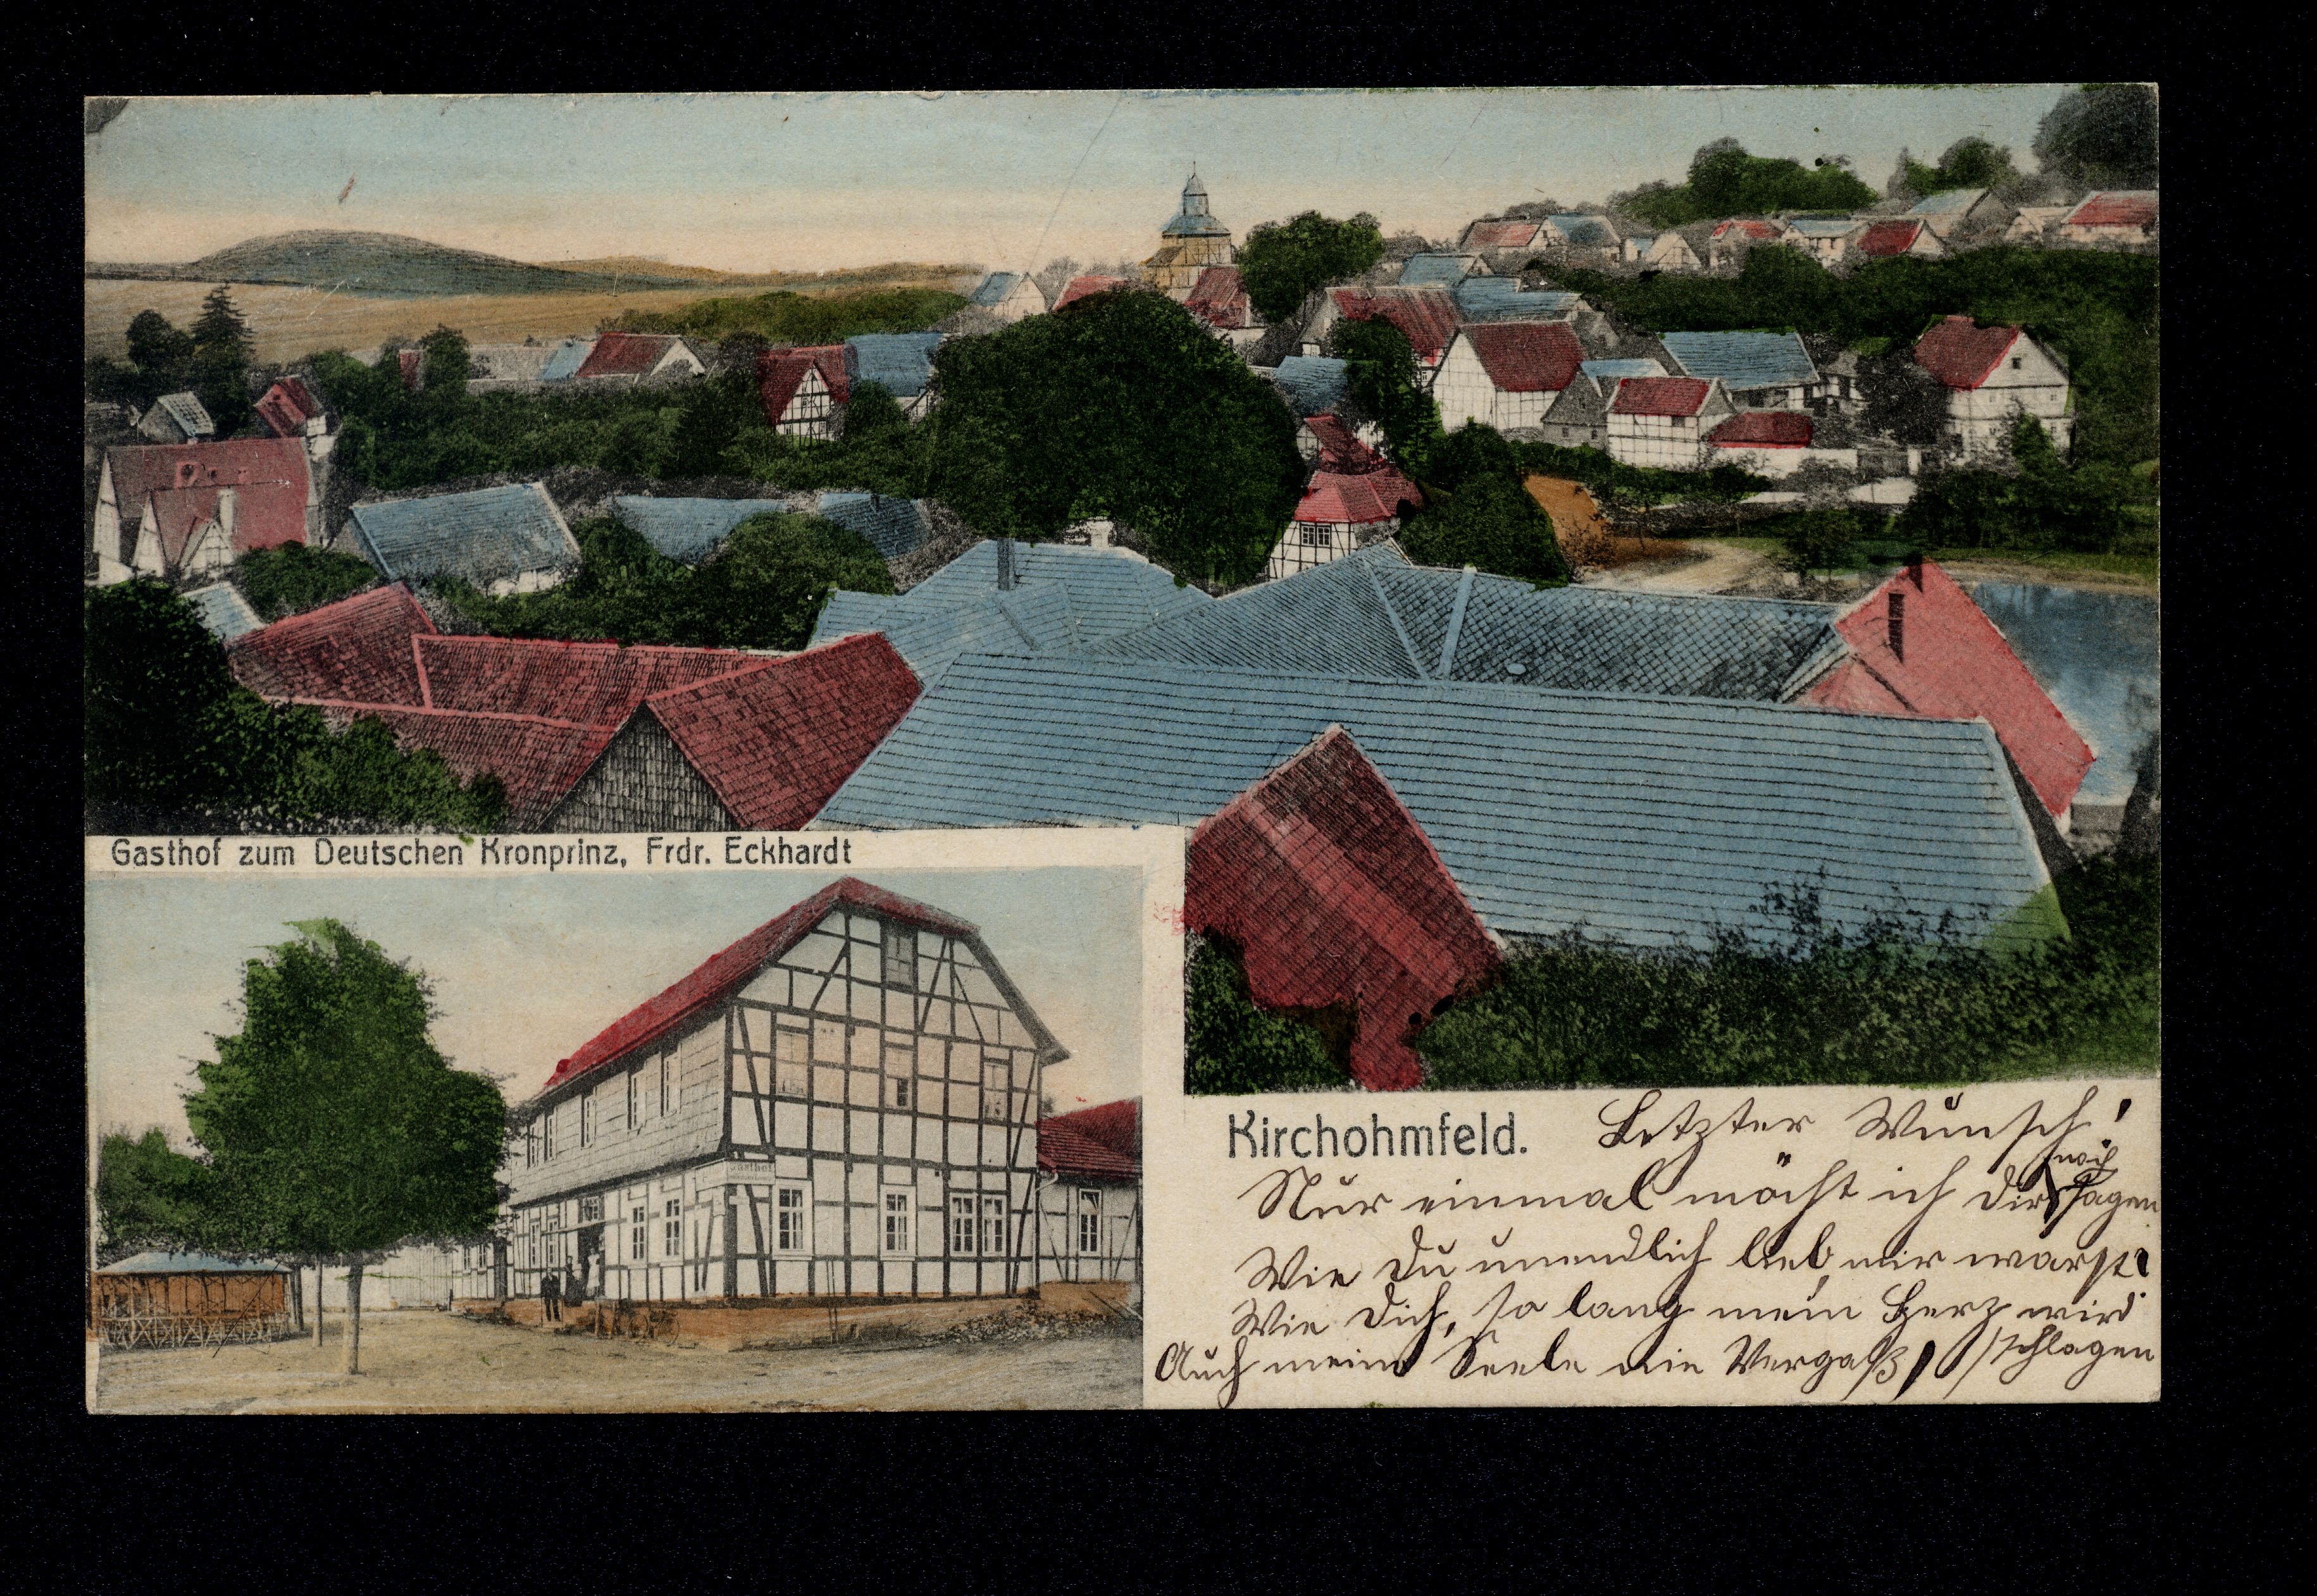 Gasthof zum Deutschen Kronprinz, Frdr. Eckhardt
Gasthof
Kirchohmfeld.
Letzter Wunsch!
Nur einmal möcht ich dir noch sagen
Wie du unendlich lieb mir warst
Wie dich, so lang mein Herz wird
schlagen
Auch meine Seele nie Vergaß!